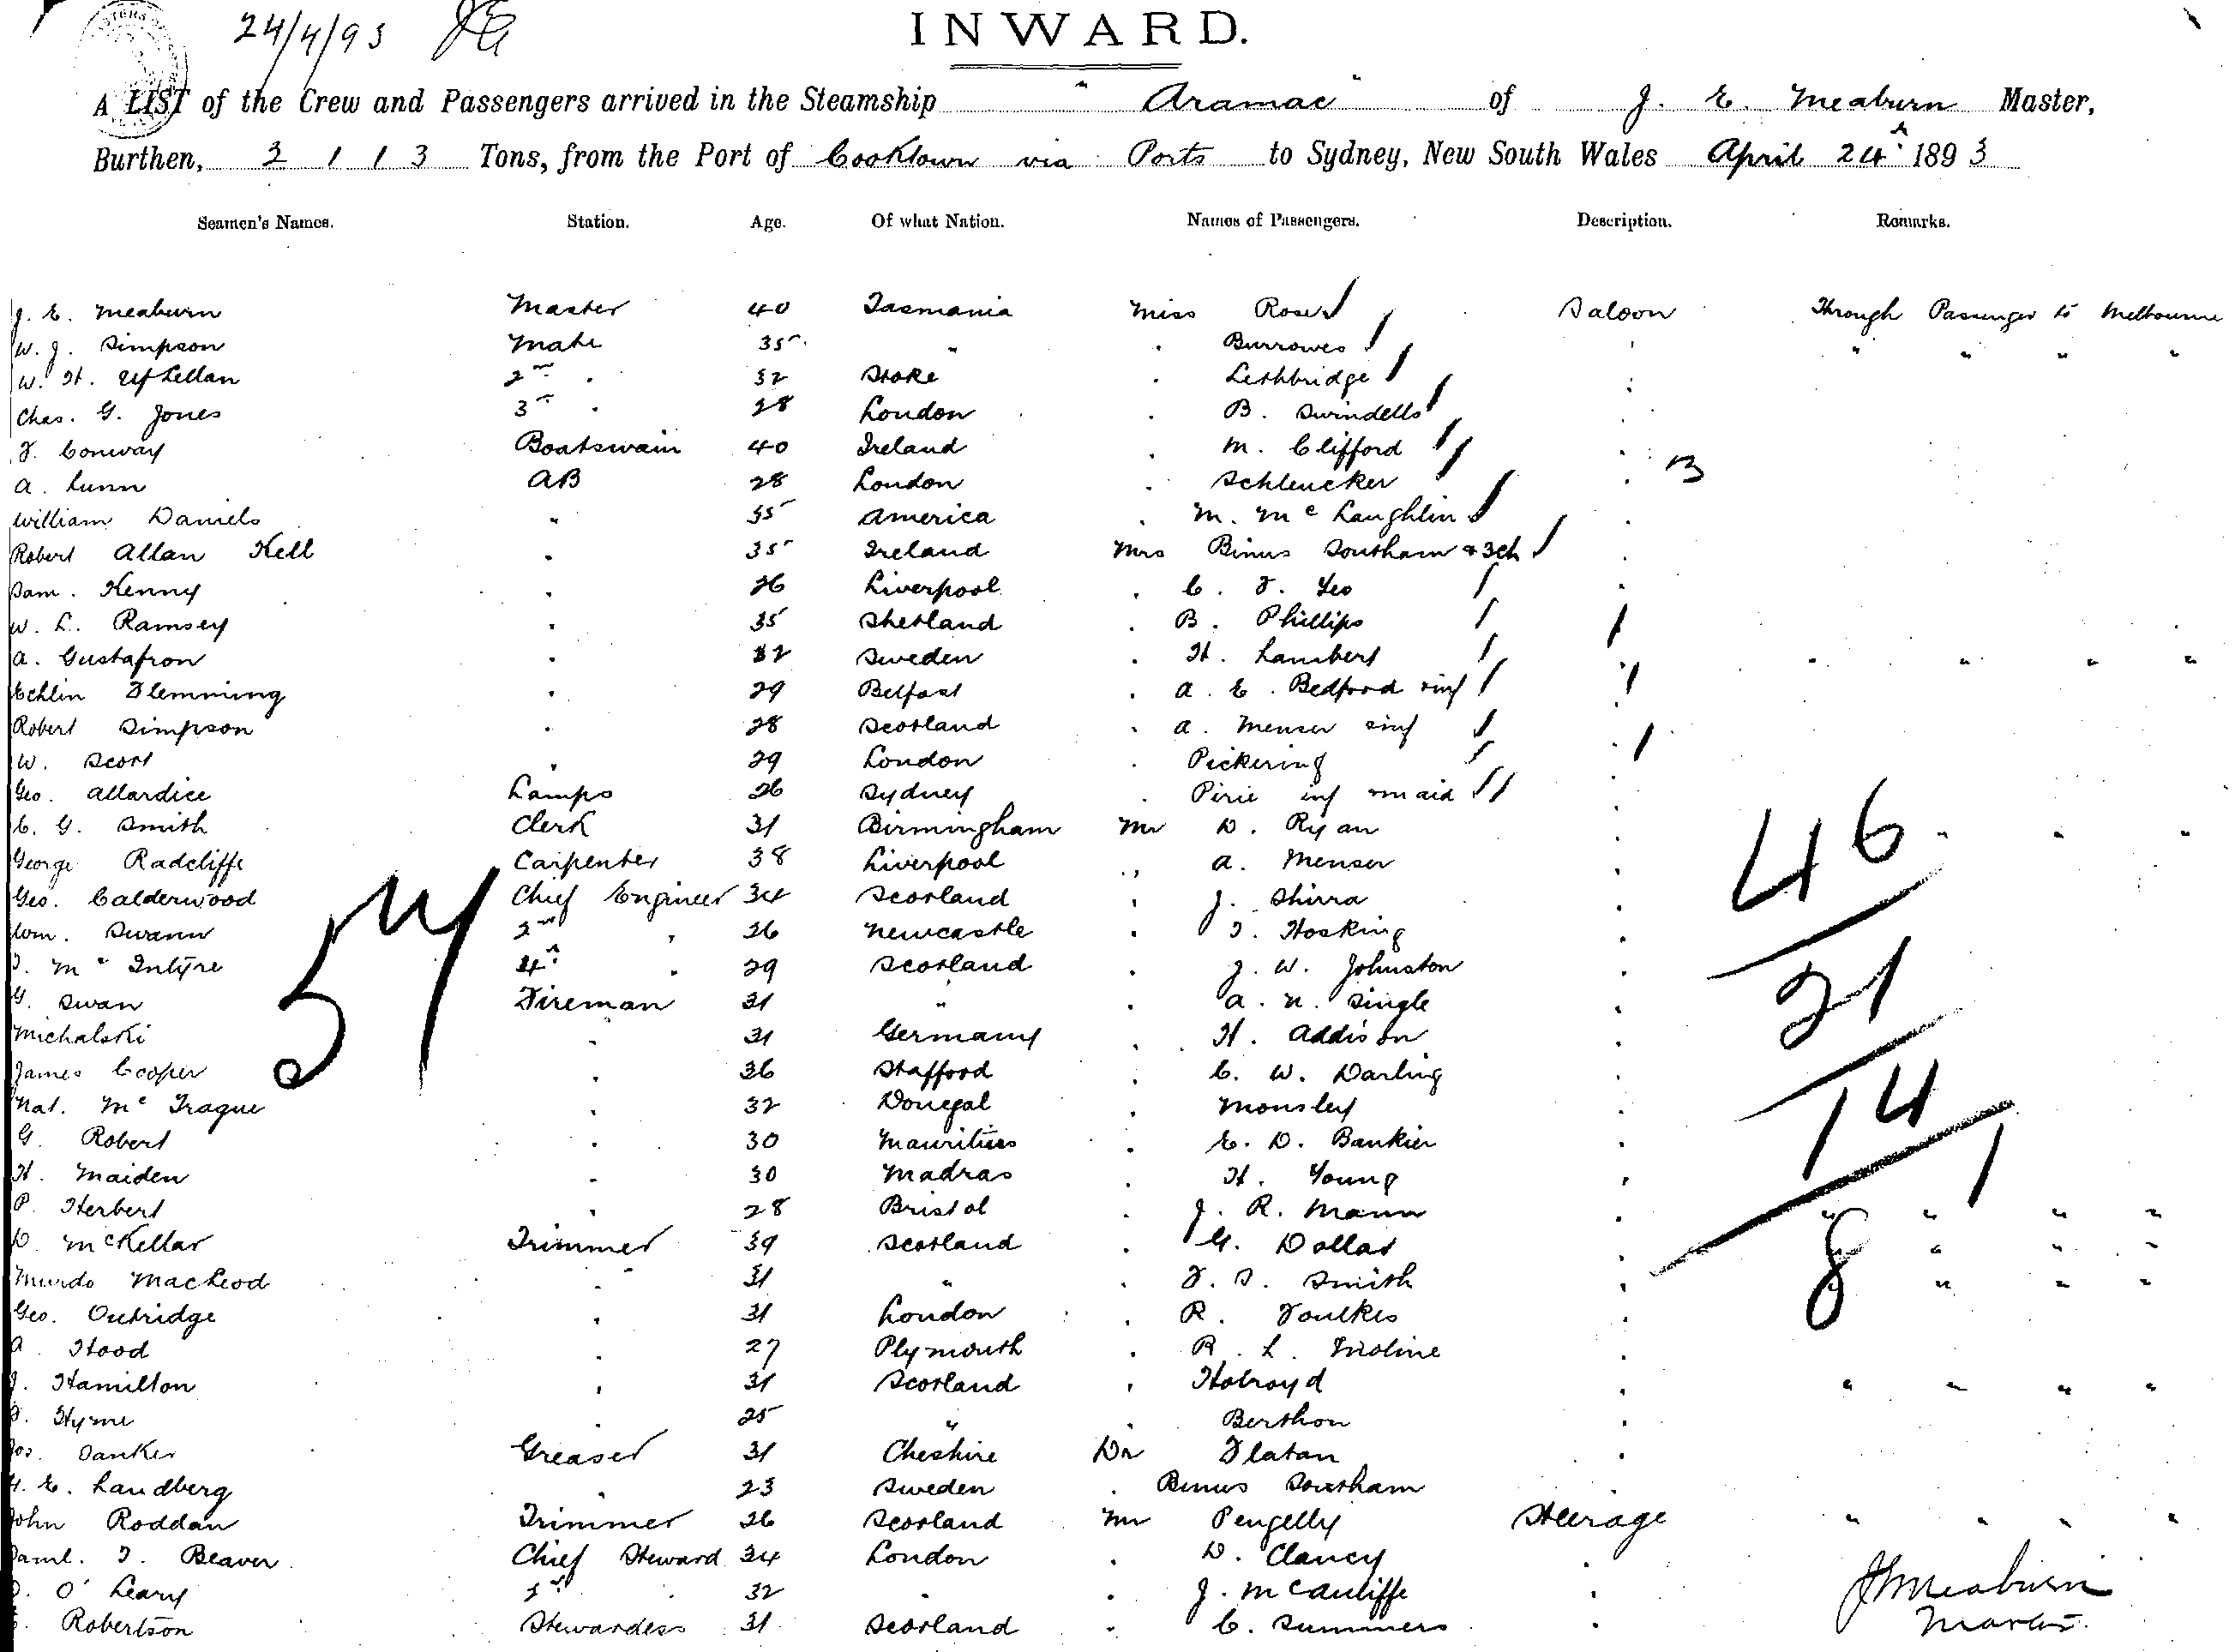 24/4/93
INWARD.
A LIST of the Crew and Passengers arrived in the Steamship "Aramac" of J. E. Meaburn Master,
Burthen, 2113 Tons, from the Port of Cooktown via Ports to Sydney, New South Wales April 24th 1893
Seamen's Names. Station. Age. Of what Nation. Names of Passengers. Description. Remarks.
J. E. Meaburn Master 40 Tasmania Miss Rose Saloon Through Passenger to Melbourne
W. J. Simpson Mate 35 " . Burrowes . " " " "
W. H. 2nd . 32 Stoke . Lethbridge .
Chas. G. Jones 3rd . 28 London . B. Swindells .
F. Conway Boatswain 40 Ireland . M. Clifford .
A. Lunn AB 28 London . Schleucker . 13
William Daniels " 35 America . M. McLaughlin .
Robert Allan Kell . 35 Ireland Mrs Binus Southam & 3ch .
Sam. Kenny . 26 Liverpool . C. F. Yeo .
W. L. Ramsey . 35 Shetland . B. Phillips
A. Gustafson . 32 Sweden . H. Lambert . " " " "
Echlin Flemming . 29 Belfast . A. E. Bedford inf
Robert Simpson . 28 Scotland . A. Menser inf
W. Scott . 29 London . Pickering .
Geo. Allardice Lamps 26 Sydney . Pirie inf maid .
C. G. Smith Clerk 31 Birmingham Mr D. Ryan . " " "
46
George Radcliffe Carpenter 38 Liverpool " A. Menser .
Geo. Calderwood Chief Engineer 34 Scotland . J. Shirra .
54
Wm. Swann 2nd " 26 Newcastle . T. Hosking .
McIntyre 4th . 29 Scotland . J. W. Johnston .
21
G. Swan Fireman 31 " . A. N. Single .
Michalski . 31 Germany . H. Addison .
James Cooper . 36 Stafford . C. W. Darling .
Nat. McTrague . 32 Donegal . Monsley .
14
G. Robert . 30 Mauritius . E. D. Bankier .
H. Maiden . 30 Madras . H. Young .
1
P. Herbert . 28 Bristol . J. R. Mann . " " " "
D. McKellar Trimmer 39 Scotland . G. Dollar . " " "
8
Murdo MacLeod . 31 " . F. S. Smith . " " "
Geo. Outridge . 31 London . R. Foulkes .
A. Hood . 27 Plymouth . R. L. Moline .
J. Hamilton . 31 Scotland . Holroyd . " " " "
Hyme . 25 " . Berthon .
Jos. Danker Greaser 31 Cheshire Dr Flatau .
E. Landberg . 23 Sweden . Binus Southam .
John Roddan Trimmer 26 Scotland Mr Pengelly Steerage " " " "
Saml. T. Beaver Chief Steward 34 London . D. Clancy .
O'Leary . 32 . . J. McAuliffe .
Robertson Stewardess 31 Scotland . C. Summers .
J E Meaburn
Master